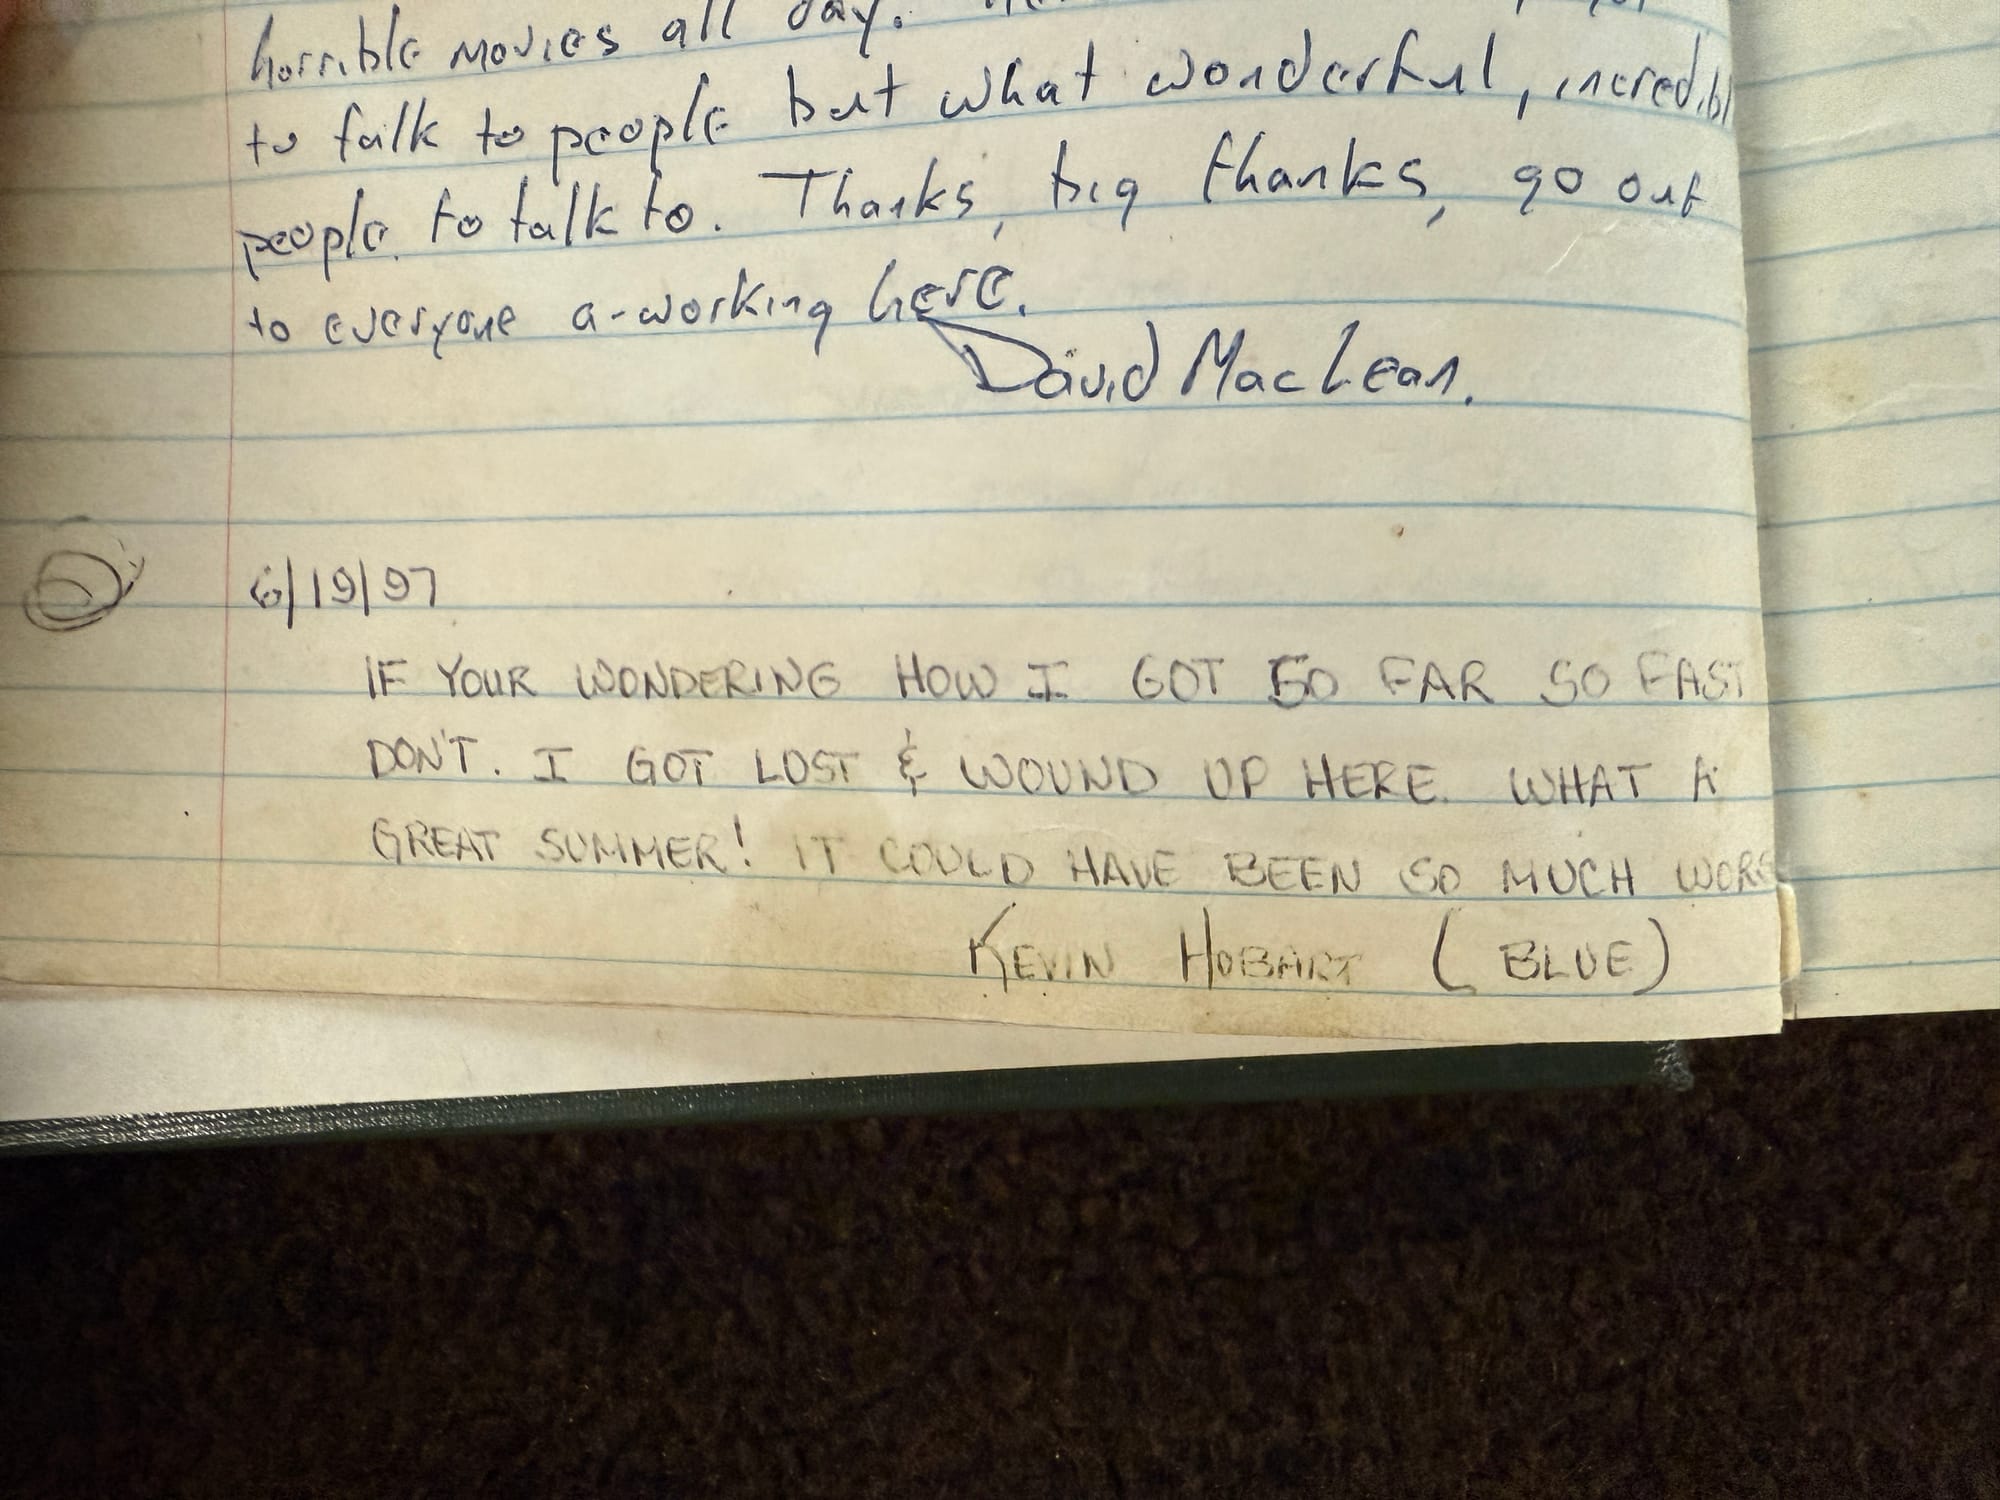 horrible movies all day.
to talk to people but what wonderful, incredibl
people to talk to. Thanks, big thanks, go out
to everyone a-working here.
David MacLean.
6/19/97
IF YOUR WONDERING HOW I GOT SO FAR SO FAST
DON'T. I GOT LOST & WOUND UP HERE. WHAT A
GREAT SUMMER! IT COULD HAVE BEEN SO MUCH WORSE
KEVIN HOBART (BLUE)